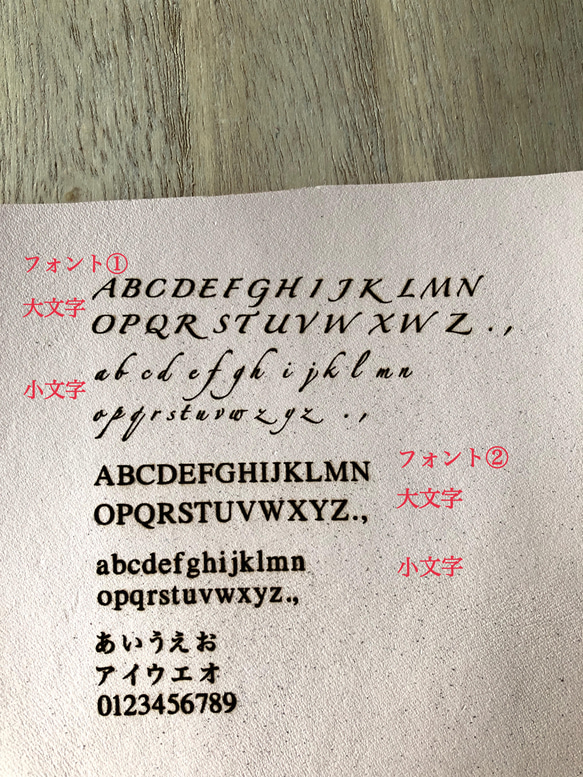 フォント①
大文字
ABCDEFGHIJKLMN
OPQRSTUVWXWZ.,
小文字
abcdefghijklmn
opqrstuvwzyz.,
フォント②
大文字
ABCDEFGHIJKLMN
OPQRSTUVWXYZ.,
小文字
abcdefghijklmn
opqrstuvwxyz.,
あいうえお
アイウエオ
0123456789